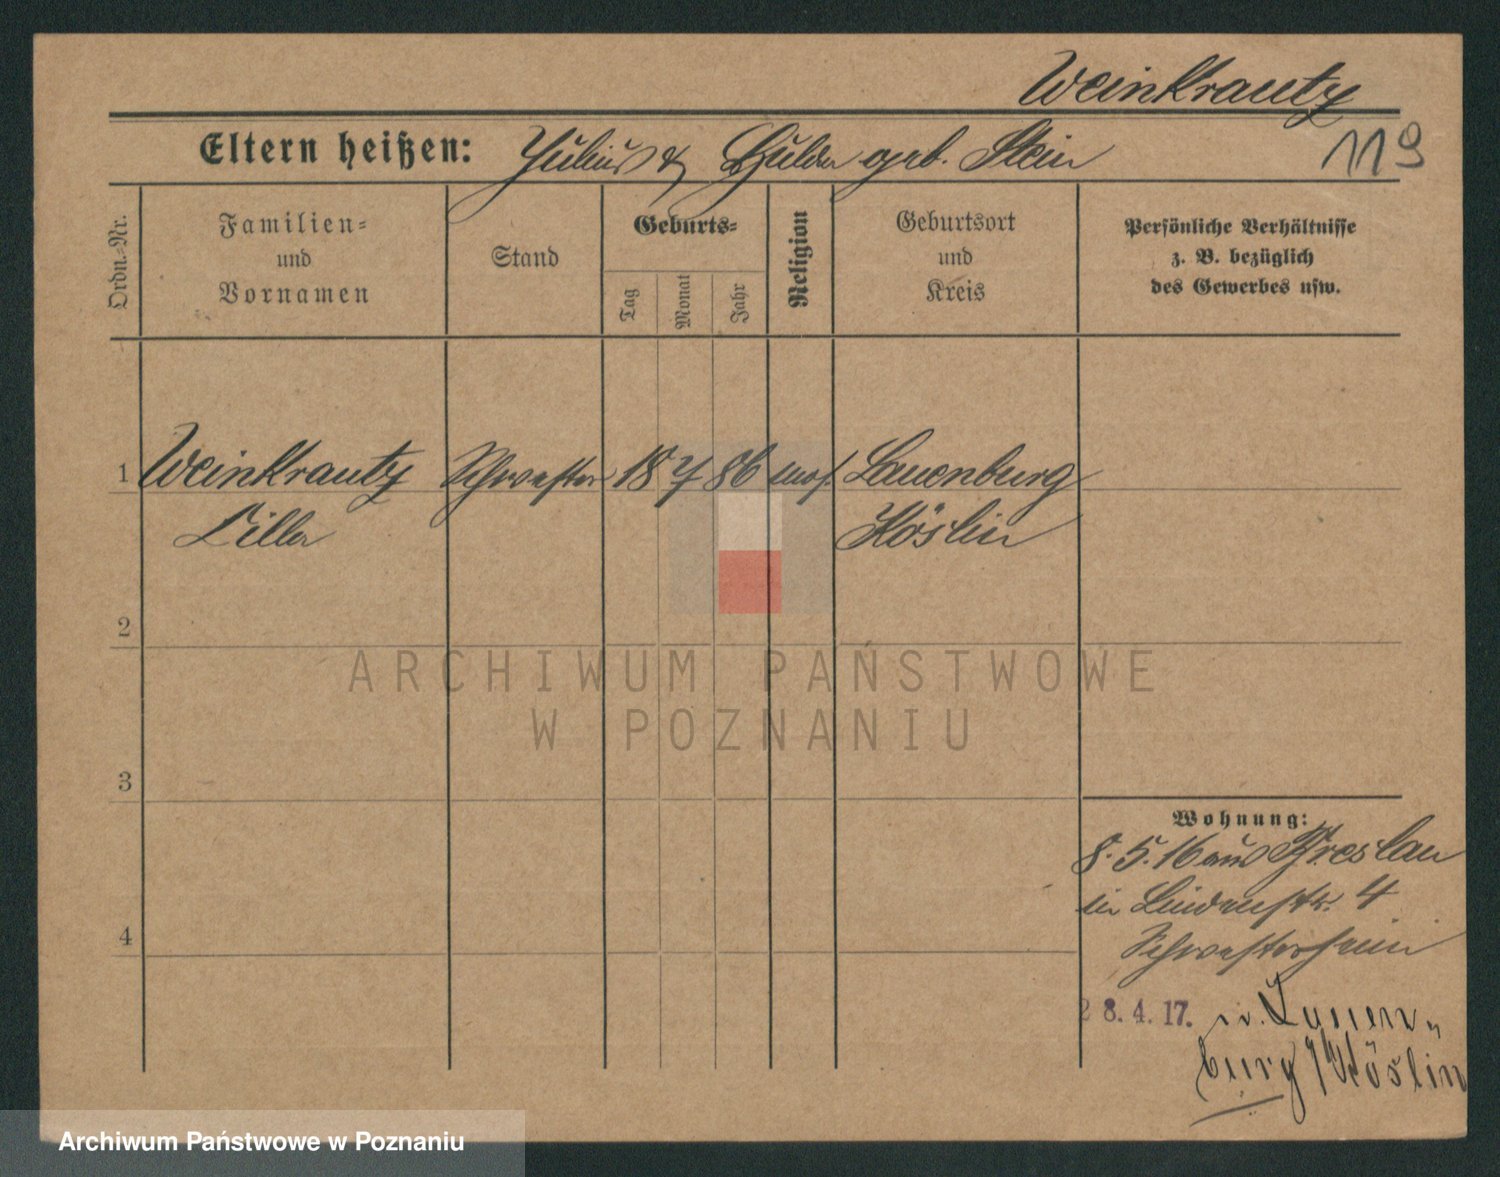 Weinkrautz
119
Eltern heißen: Julius & Hulda geb. Stein
Ordn.-Nr.
Familien-
und
Vornamen
Stand
Geburts-
Tag
Monat
Jahr
Religion
Geburtsort
und
Kreis
Persönliche Verhältnisse
z. B. bezüglich
des Gewerbes usw.
1 Weinkrautz Schwester 18 7 86 mos. Lauenburg
Cilla Köslin
2
3
4
Wohnung:
8. 5. 16 aus Breslau
in Lindenstr. 4
Schwesternheim
28. 4. 17. n. Lauen-
burg / Köslin
ARCHIWUM PAŃSTWOWE
W POZNANIU
Archiwum Państwowe w Poznaniu